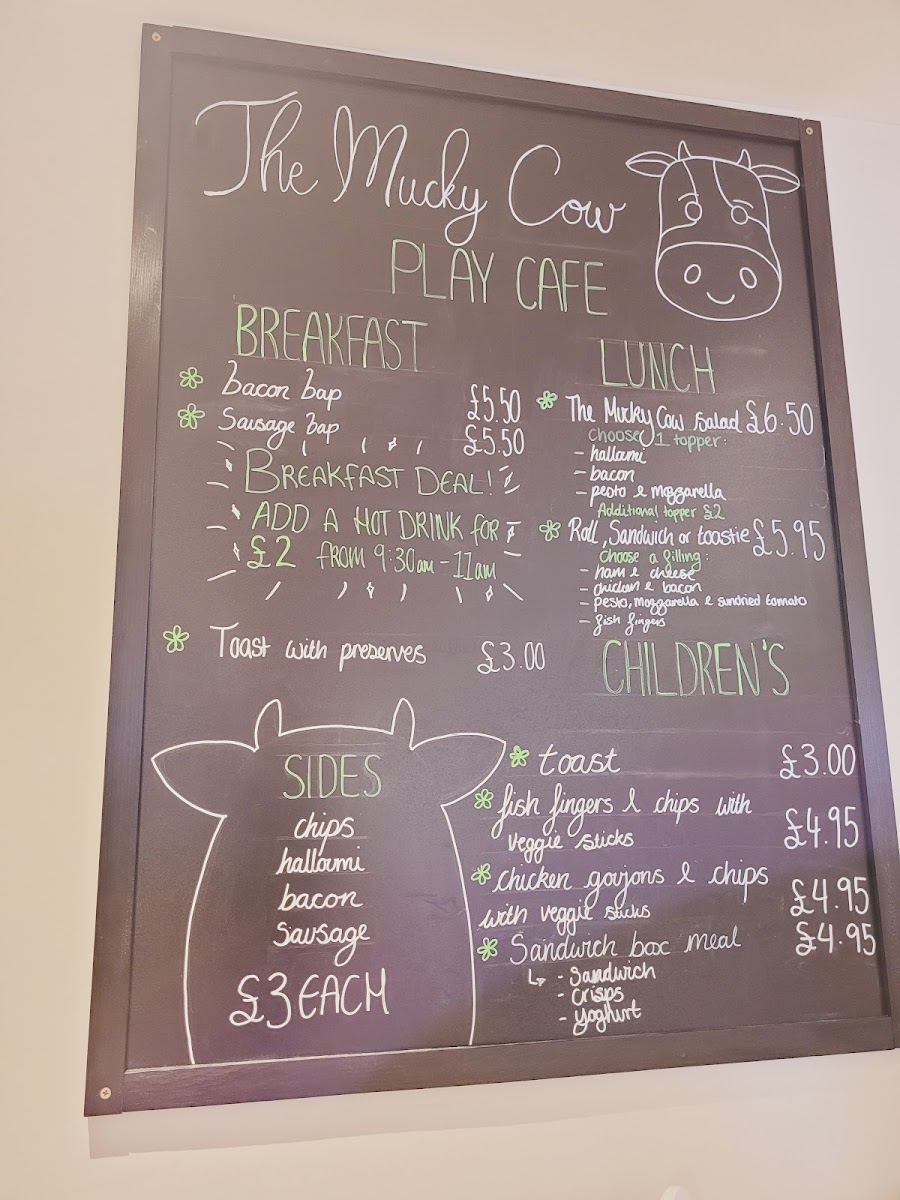 The Mucky Cow
PLAY CAFE
BREAKFAST
bacon bap £5.50
Sausage bap £5.50
BREAKFAST DEAL!
ADD A HOT DRINK FOR
£2 FROM 9:30am - 11am
Toast with preserves £3.00
LUNCH
The Mucky Cow salad £6.50
choose 1 topper:
- hallami
- bacon
- pesto & mozzarella
Additional topper £2
Roll, Sandwich or toastie £5.95
choose a filling:
- ham & cheese
- chicken & bacon
- pesto, mozzarella & sundried tomato
- fish fingers
SIDES
chips
hallami
bacon
sausage
£3 EACH
CHILDREN'S
toast £3.00
fish fingers & chips with
veggie sticks £4.95
chicken goujons & chips
with veggie sticks £4.95
Sandwich box meal £4.95
- Sandwich
- Crisps
- Yoghurt